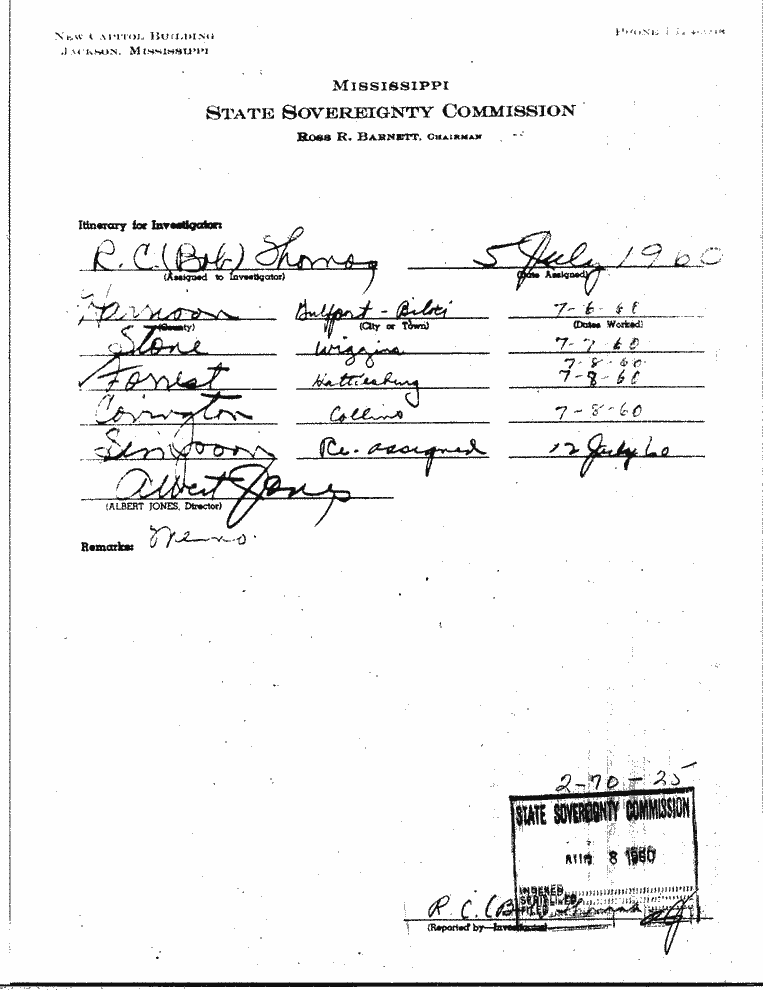 NEW CAPITOL BUILDING
JACKSON, MISSISSIPPI
PHONE
MISSISSIPPI
STATE SOVEREIGNTY COMMISSION
ROSS R. BARNETT, CHAIRMAN
Itinerary for Investigator:
R. C. (Bob) Thomas 5 July 1960
(Assigned to Investigator) (Date Assigned)
Harrison Gulfport - Biloxi 7-6-60
(County) (City or Town) (Dates Worked)
Stone Wiggins 7-7-60
7-8-60
Forrest Hattiesburg 7-8-60
Covington Collins 7-8-60
Simpson Re-assigned 12 July 60
Albert Jones
(ALBERT JONES, Director)
Remarks: Memo.
2-70-25
STATE SOVEREIGNTY COMMISSION
AUG 8 1960
INDEXED
SERIALIZED
FILED
R. C. (Bob) Thomas
(Reported by—Investigator)